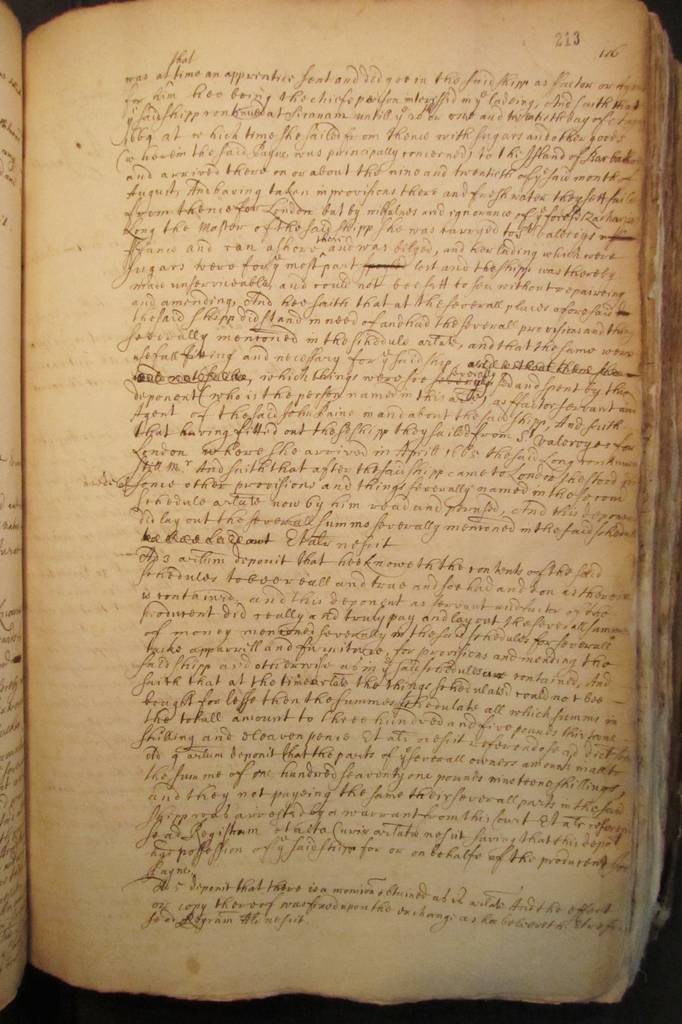 213
116
that
was at time an apprentice sent and did goe in the said shipp as factor or Agent
for him hee being the chiefe person interessed in ye ladeing, And saith that
ye said shipp continued at Siranam untill ye 20 or one and twentieth day of
1669 at which time she sailed from thence with sugars and other goods
(wherein the said Payne was principally concerned) to the Island of Barbados
and arrived there on or about the nine and twentieth of ye said month of
August, And having taken in provisions there and fresh water they sett saile
from thence for London but by wilfulnes and ignorance of ye foresd Zachar
Long the Master of the said shipp she was carryed to St Valeroyes in
France and ran ashore there and was bilged, and her lading which were
sugars were for ye most part lost and the shipp was thereby
made unserviceable, and could not bee sett to sea without repaireing
and amending, And hee saith that at the severall places aforesaid
the said shipp did stand in need of and had the severall provisions and things
severally mentioned in the schedule arlate, and that the same were
usefull fitting and necessary for ye said ship
which things were soe severally used and spent by the
deponent (who is the person named in this arle) as ffactor servant and
Agent of the said John Paine in and about the said shipp, And saith
that having fitted out the sd shipp they sailed from St Valeroyes for
London where she arrived in Aprill the said Long continued
still Mr And saith that after the said shipp came to London she stood
some other provisions and things severally named in the second
schedule arlate now by him read and perused, And this deponent
did lay out the severall summs severally mentioned in the said schedule
Et alr nescit
Ad 3 arlum deponit that hee knoweth the contents of the said
schedules to bee reall and true and soe had and don as therein
is contained, and this deponent as servant and factor of the
producent did really and truly pay and lay out the severall summs
of money mentioned severally in the said schedules for severall
tacke apparrill and furniture, for provisions and mending the
said shipp and otherwise as in ye said schedules are contained, And
saith that at the time arlate the things schedulated could not bee
bought for lesse then the summes schedulate all which summs in
the totall amount to three hundred and five pounds thirteene
shilling and eleaven pence Et alr nescit referendo se ad dict
Ad 4 arlum deponit that the parts of ye severall owners amounts
the summe of one hundred seaventy one pounds nineteene shillings,
and they not payeing the same their severall parts in the said
shipp was arrested by a warrant from this Court Et alr referendo
se ad Registrum et acta Curiæ arlate nescit saving that this depot
had possession of ye said shipp for or on behalfe of the producent
Payne
Ad 5 deponit that there is a monition obtained as is arlate And the effect
or copy thereof was fixed upon the exchange as hee beleeveth. Et referendo
se ad Regram Alr nescit